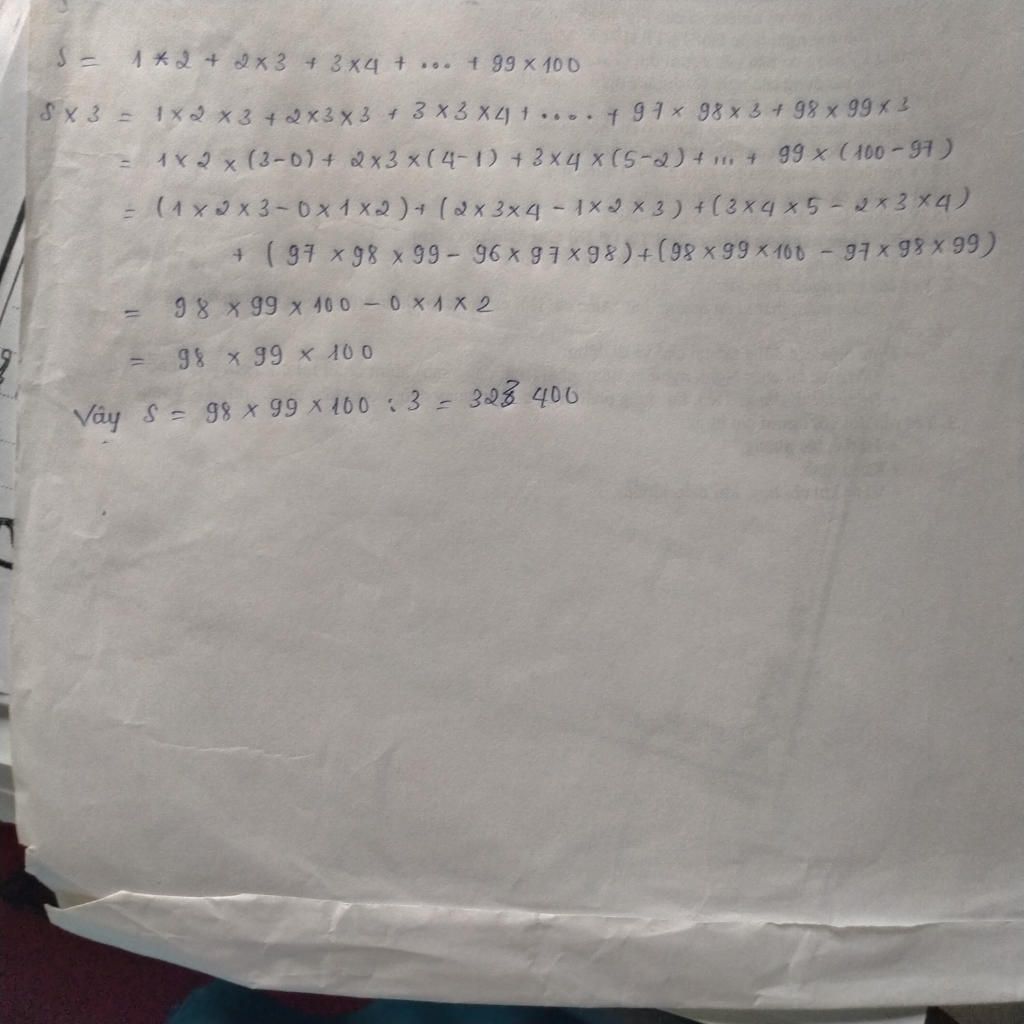 S = 1 × 2 + 2 × 3 + 3 × 4 + ... + 99 × 100
S × 3 = 1 × 2 × 3 + 2 × 3 × 3 + 3 × 3 × 4 + ..... + 97 × 98 × 3 + 98 × 99 × 3
= 1 × 2 × (3 - 0) + 2 × 3 × (4 - 1) + 3 × 4 × (5 - 2) + ... + 99 × (100 - 97)
= (1 × 2 × 3 - 0 × 1 × 2) + (2 × 3 × 4 - 1 × 2 × 3) + (3 × 4 × 5 - 2 × 3 × 4)
+ (97 × 98 × 99 - 96 × 97 × 98) + (98 × 99 × 100 - 97 × 98 × 99)
= 98 × 99 × 100 - 0 × 1 × 2
= 98 × 99 × 100
Vậy S = 98 × 99 × 100 : 3 = 323 400